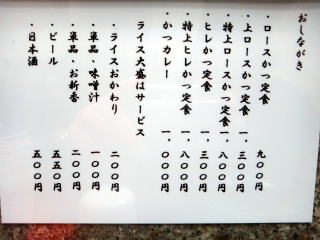 おしながき
・ロースかつ定食 九〇〇円
・上ロースかつ定食 一、三〇〇円
・特上ロースかつ定食 一、八〇〇円
・ヒレかつ定食 一、三〇〇円
・特上ヒレかつ定食 一、八〇〇円
・かつカレー 一、〇〇〇円
ライス大盛はサービス
・ライスおかわり 二〇〇円
・単品・味噌汁 一〇〇円
・単品・お新香 二〇〇円
・ビール 五五〇円
・日本酒 五〇〇円